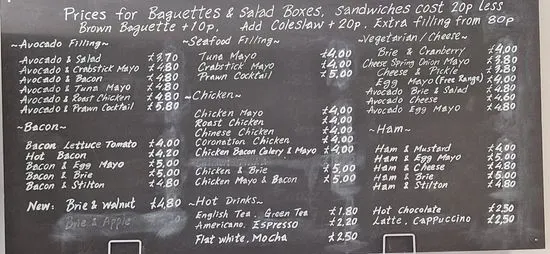 Prices for Baguettes & Salad Boxes, Sandwiches cost 20p less
Brown Baguette +10p. Add Coleslaw +20p. Extra filling from 80p
~Avocado Filling~
Avocado & Salad £3.70
Avocado & Crabstick Mayo £4.80
Avocado & Bacon £4.80
Avocado & Tuna Mayo £4.80
Avocado & Roast Chicken £4.80
Avocado & Prawn Cocktail £5.80
~Bacon~
Bacon Lettuce Tomato £4.00
Hot Bacon £4.20
Bacon & Egg Mayo £5.00
Bacon & Brie £5.00
Bacon & Stilton £4.80
New: Brie & Walnut £4.80
Brie & Apple
~Seafood Filling~
Tuna Mayo £4.00
Crabstick Mayo £4.00
Prawn Cocktail £5.00
~Chicken~
Chicken Mayo £4.00
Roast Chicken £4.00
Chinese Chicken £4.00
Coronation Chicken £4.00
Chicken Bacon Celery & Mayo £4.00
Chicken & Brie £5.00
Chicken Mayo & Bacon £5.00
~Hot Drinks~
English Tea, Green Tea £1.80
Americano, Espresso £2.20
Flat white, Mocha £2.50
~Vegetarian / Cheese~
Brie & Cranberry £4.00
Cheese Spring Onion Mayo £3.80
Cheese & Pickle £3.80
Egg Mayo (Free Range)
Avocado Brie & Salad £4.80
Avocado Cheese £4.60
Avocado Egg Mayo £4.80
~Ham~
Ham & Mustard £4.00
Ham & Egg Mayo £5.00
Ham & Cheese £4.80
Ham & Brie £5.00
Ham & Stilton £4.80
Hot Chocolate £2.50
Latte, Cappuccino £2.50